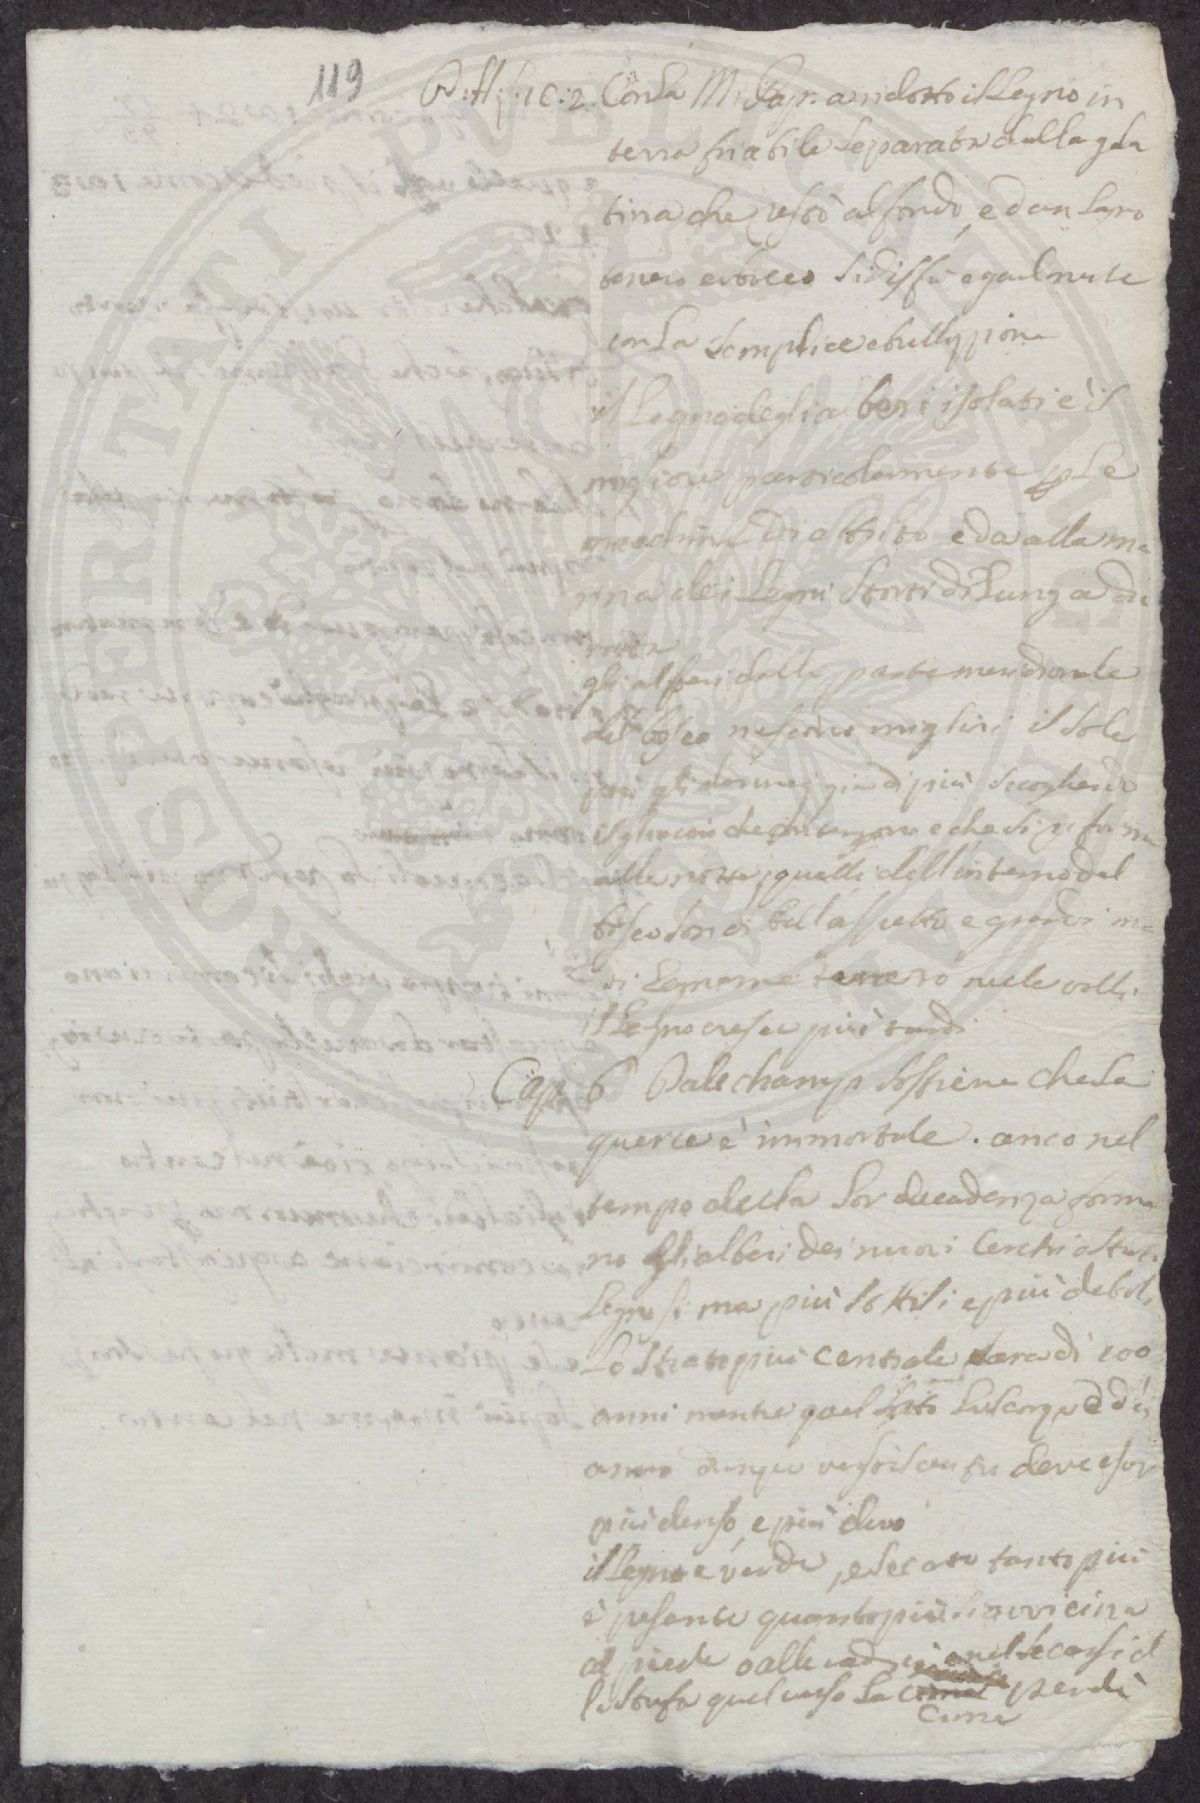 119
Con la M. Papin a ridotto il Legno in
terra friabile separata dalla gela
tina che restò al fondo, ed un Legno
tenero e bosceo si disfà egualmente
con la semplice ebullizione
il Legno degli alberi isolati è il
migliore particolarmente p Le
machine di attrito e da alla ma
rina dei Legni storti di lunga du
rata
gli alberi dalla parte meridionale
del bosco riescono migliori il sole
poi gli danneggia di più sciogliendo
il ghiaccio che e che si riforma
alla notte, quelli dell interno del
bosco son di bell aspetto e grandi ma
di Legname tenero nelle valli
il Legno cresce più tardi
Cap. 6 Dalechamp sostiene che la
querce è immortale. anco nel
tempo della Lor decadenza forma
no gli alberi dei nuovi Cerchi o strati
Legnosi ma più sottili e più deboli
Lo strato più centrale sara di 100
anni mentre quel sotto la scorza è d un
anno dunque verso il centro deve esser
più denso, e più duro
il Legno e verde, e secato tanto più
è pesante quanto più si avvicina
al piede o alle radici
quel verso la cima perde
Cima